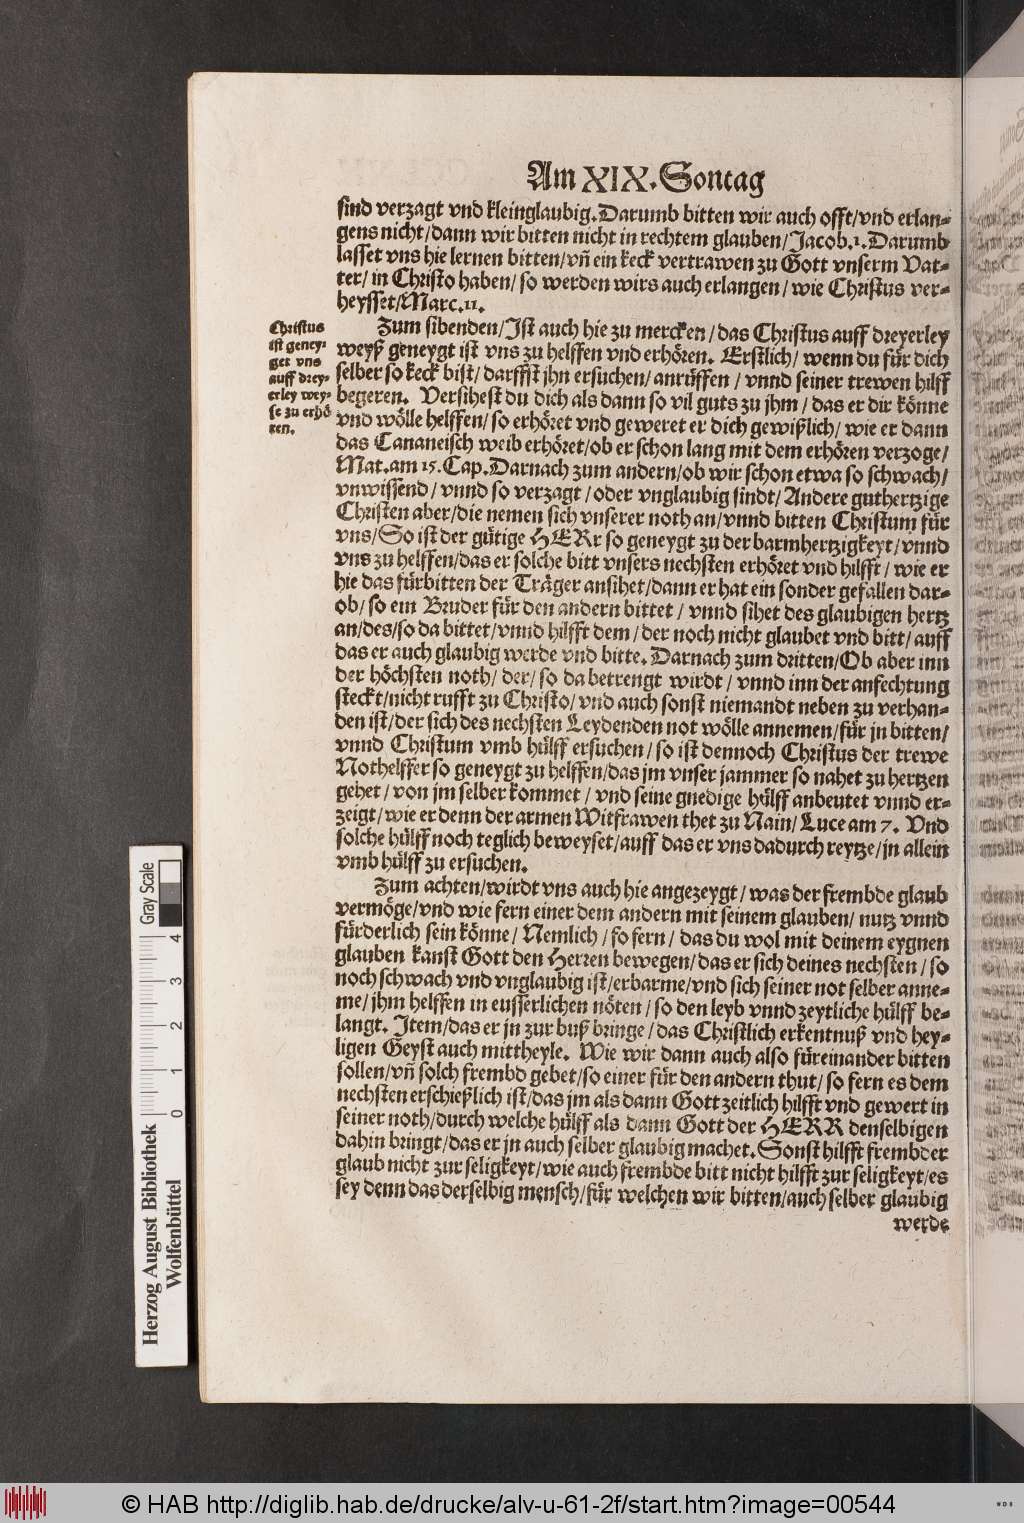 Am XIX. Sontag
sind verzagt vnd kleinglaubig. Darumb bitten wir auch offt/vnd erlan-
gens nicht/dann wir bitten nicht in rechtem glauben/Jacob.1. Darumb
lasset vns hie lernen bitten/vñ ein keck vertrawen zu Gott vnserm Vat-
ter/ in Christo haben/ so werden wirs auch erlangen/ wie Christus ver-
heysset/Marc.11.
Christus
ist geney-
get vns
auff drey-
erley wey-
se zu erhö
ren.
Zum sibenden/Jst auch hie zu mercken/das Christus auff dreyerley
weyß geneygt ist vns zu helffen vnd erhören. Erstlich/ wenn du für dich
selber so keck bist/ darffst jhn ersuchen/anrüffen/ vnnd seiner trewen hilff
begeren. Versihest du dich als dann so vil guts zu jhm/ das er dir könne
vnd wölle helffen/ so erhöret vnd geweret er dich gewißlich/ wie er dann
das Cananeisch weib erhöret/ob er schon lang mit dem erhören verzoge/
Mat.am 15. Cap. Darnach zum andern/ob wir schon etwa so schwach/
vnwissend/ vnnd so verzagt/oder vnglaubig sindt/ Andere guthertzige
Christen aber/die nemen sich vnserer noth an/vnnd bitten Christum für
vns/ So ist der gütige HERr so geneygt zu der barmhertzigkeyt/vnnd
vns zu helffen/das er solche bitt vnsers nechsten erhöret vnd hilfft/ wie er
hie das fürbitten der Träger ansihet/dann er hat ein sonder gefallen dar-
ob/ so ein Bruder für den andern bittet/ vnnd sihet des glaubigen hertz
an/des/so da bittet/vnnd hilfft dem/ der noch nicht glaubet vnd bitt/ auff
das er auch glaubig werde vnd bitte. Darnach zum dritten/Ob aber inn
der höchsten noth/ der/ so da betrengt wirdt/ vnnd inn der anfechtung
steckt/nicht rufft zu Christo/ vnd auch sonst niemandt neben zu verhan-
den ist/der sich des nechsten Leydenden not wölle annemen/für jn bitten/
vnnd Christum vmb hülff ersuchen/ so ist dennoch Christus der trewe
Nothelffer so geneygt zu helffen/das jm vnser jammer so nahet zu hertzen
gehet/ von jm selber kommet/ vnd seine gnedige hülff anbeutet vnnd er-
zeigt/wie er denn der armen Witfrawen thet zu Nain/ Luce am 7. Vnd
solche hülff noch teglich beweyset/auff das er vns dadurch reytze/jn allein
vmb hülff zu ersuchen.
Zum achten/wirdt vns auch hie angezeygt/ was der frembde glaub
vermöge/vnd wie fern einer dem andern mit seinem glauben/ nutz vnnd
fürderlich sein könne/ Nemlich/ so fern/ das du wol mit deinem eygnen
glauben kanst Gott den Herren bewegen/das er sich deines nechsten/ so
noch schwach vnd vnglaubig ist/erbarme/vnd sich seiner not selber anne-
me/jhm helffen in eusserlichen nöten/ so den leyb vnnd zeytliche hülff be-
langt. Jtem/das er jn zur buß bringe/ das Christlich erkentnuß vnd hey-
ligen Geyst auch mittheyle. Wie wir dann auch also füreinander bitten
sollen/vñ solch frembd gebet/so einer für den andern thut/ so fern es dem
nechsten erschießlich ist/das jm als dann Gott zeitlich hilfft vnd gewert in
seiner noth/durch welche hülff als dann Gott der HERR denselbigen
dahin bringt/das er jn auch selber glaubig machet. Sonst hilfft frembder
glaub nicht zur seligkeyt/wie auch frembde bitt nicht hilfft zur seligkeyt/es
sey denn das derselbig mensch/für welchen wir bitten/auch selber glaubig
werde
Herzog August Bibliothek
Wolfenbüttel
0 1 2 3 4
Gray Scale
© HAB http://diglib.hab.de/drucke/alv-u-61-2f/start.htm?image=00544
WDB